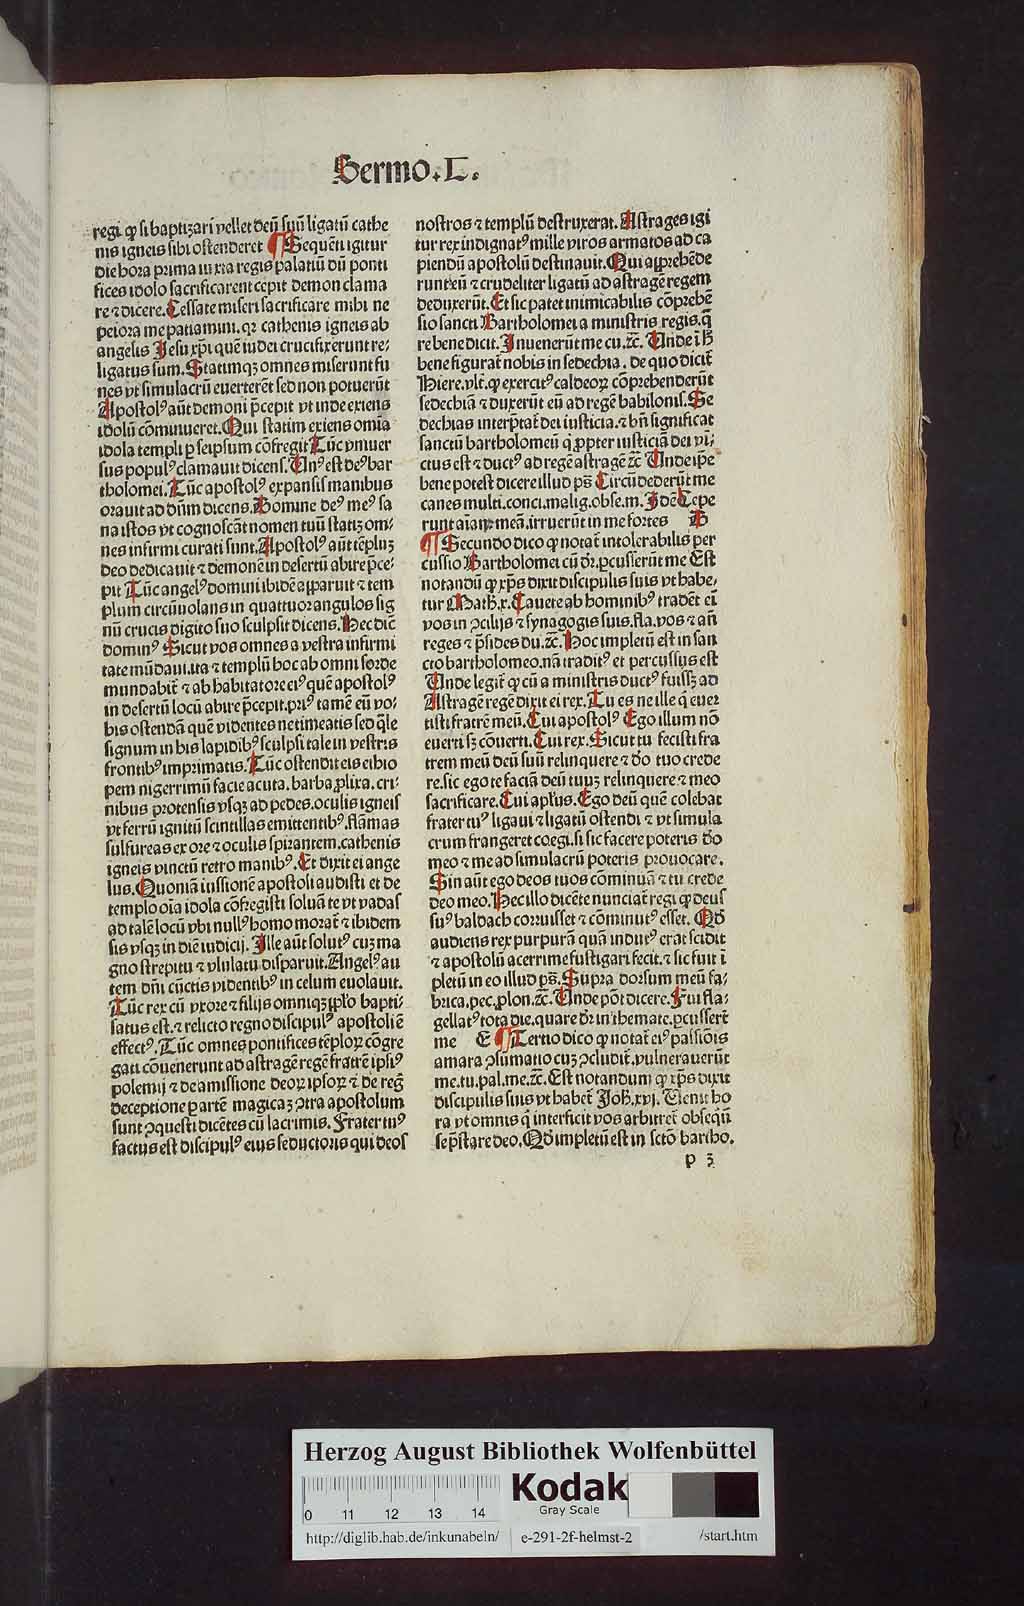 Sermo.L.
regi ꝙ si baptizari vellet deū suū ligatū cathe
nis igneis sibi ostenderet ¶ Sequēti igitur
die hora prima iuxta regis palatiū dū ponti
fices idolo sacrificarent cepit demon clama
re ⁊ dicere. Cessate miseri sacrificare mihi ne
peiora me patiamini. qꝛ cathenis igneis ab
angelis Jesu xp̄i quē iudei crucifixerunt re⸗
ligatus sum. Statimqꝫ omnes miserunt fu
nes vt simulacrū euerterēt sed non potuerūt
Apostolꝰ aūt demoni p̄cepit vt inde exiens
idolū cōminueret. Qui statim exiens om̄ia
idola templi ꝑ seipsum cōfregit Tūc vniuer
sus populꝰ clamauit dicens. Unꝰ est deꝰ bar
tholomei. Tūc apostolꝰ expansis manibus
orauit ad dūm dicens. Domine deꝰ meꝰ sa
na istos vt cognoscāt nomen tuū statiꝫ om⸗
nes infirmi curati sunt. Apostolꝰ aūt tēpluꝫ
deo dedicauit ⁊ demonē in desertū abire p̄ce⸗
pit Tūc angelꝰ domini ibidē apparuit ⁊ tem
plum circūuolans in quattuor angulos sig
nū crucis digito suo sculpsit dicens. Hec diē
dominꝰ Sicut vos omnes a vestra infirmi
tate mūdaui. ita ⁊ templū hoc ab omni sorde
mundabit̄ ⁊ ab habitatore eiꝰ quē apostolꝰ
in desertū locū abire p̄cepit. priꝰ tamē eū vo⸗
bis ostendā quē videntes ne timeatis sed q̄le
signum in his lapidibꝰ sculpsi tale in vestris
frontibꝰ imprimatis. Tūc ostendit eis ethio
pem nigerrimū facie acuta. barba ꝓlixa. cri⸗
nibus protensis vsqꝫ ad pedes. oculis igneis
vt ferrū ignitū scintillas emittentibꝰ. flāmas
sulfureas ex ore ⁊ oculis spirantem. cathenis
igneis vinctū retro manibꝰ. Et dixit ei ange
lus. Quoniā iussionē apostoli audisti et de
templo oīa idola cōfregisti soluā te vt vadas
ad talē locū vbi nullꝰ homo morat̄ ⁊ ibidem
sis vsqꝫ in diē iudicij. Ille aūt solutꝰ cuꝫ ma
gno strepitu ⁊ vlulatu disparuit. Angelꝰ au
tem dn̄i cūctis videntibꝰ in celum euolauit.
Tūc rex cū vxore ⁊ filijs omniqꝫ pplo bapti⸗
satus est. ⁊ relicto regno discipulꝰ apostoli ē
effectꝰ. Tūc omnes pontifices tēploꝝ cōgre
gati cōuenerunt ad astragē regē fratrē ipsiꝰ
polemij ⁊ de amissione deoꝝ ipsoꝝ ⁊ de regꝭ
deceptione ꝑ artē magicaꝫ ꝯtra apostolum
sunt ꝯquesti dicētes cū lacrimis. Frater tuꝰ
factus est discipulꝰ eius seductoris qui deos
nostros ⁊ templū destruxerat. Astrages igi
tur rex indignatꝰ mille viros armatos ad ca
piendū apostolū destinauit. Qui apprehēde
runt eū ⁊ crudeliter ligatū ad astragē regem
deduxerūt. Et sic patet inimicabilis cōprehē
sio sancti Bartholomei a ministris regis. q̄
re bene dicit. Inuenerūt me cu. ⁊c̄. Unde i h̄
bene figurat̄ nobis in sedechia. de quo dicit̄
Hiere. vlt̄. ꝙ exercitꝰ caldeoꝝ cōprehenderūt
sedechiā ⁊ duxerūt eū ad regē babilonis. Se
dechias interp̄tat̄ dei iusticia. ⁊ bn̄ significat
sanctū bartholomeū q̄ ꝓpter iusticiā dei vi⸗
ctus est ⁊ ductꝰ ad regē astragē ⁊c̄ Unde ip̄e
bene potest dicere illud ps̄ Circūdederūt me
canes multi. conci. malig. obse. m. Ideꝫ Cepe
runt aīam meā. irruerūt in me fortes B
¶ Secundo dico ꝙ notat̄ intolerabilis per
cussio Bartholomei cū dr̄. ꝑcusserūt me Est
notandū ꝙ xp̄s dixit discipulis suis vt habe⸗
tur Math. x. Cauete ab hominibꝰ tradēt eī
vos in ꝯcilijs ⁊ synagogis suis. fla. vos ⁊ an̄
reges ⁊ p̄sides du. ⁊c̄. Hoc impletū est in san
cto bartholomeo. nā traditꝰ et percussus est
Unde legit̄ ꝙ cū a ministris ductꝰ fuissꝫ ad
Astragē regē dixit ei rex. Tu es ne ille q̄ euer
tisti fratrē meū. Cui apostolꝰ Ego illum nō
euerti sꝫ cōuerti. Cui rex. Sicut tu fecisti fra
trem meū deū suū relinquere ⁊ dō tuo crede
re. sic ego te faciā deū tuuꝫ relinquere ⁊ meo
sacrificare. Cui apl̄us. Ego deū quē colebat
frater tuꝰ ligaui ⁊ ligatū ostendi ⁊ vt simula
crum frangeret coegi. si sic facere poteris dō
meo ⁊ me ad simulacrū poteris prouocare.
Sin aūt ego deos tuos cōminuā ⁊ tu crede
deo meo. Hec illo dicēte nunciat̄ regi ꝙ deus
suꝰ baldach corruisset ⁊ cōminutꝰ esset. Qd̄
audiens rex purpurā quā indutꝰ erat scidit
⁊ apostolū acerrime fustigari fecit. ⁊ sic fuit ī
pletū in eo illud ps̄. Supra dorsum meū fa⸗
brica. pec. ꝓlon. ⁊c̄. Unde pōt dicere. Fui fla⸗
gellatꝰ tota die. quare dr̄ in themate. ꝑcusserūt
me E ¶ Tertio dico ꝙ notat̄ eiꝰ passiōis
amara ꝯsumatio cuꝫ ꝯcludit̄. vulnerauerūt
me. tu. pal. me. ⁊c̄. Est notandum ꝙ xp̄s dixit
discipulis suis vt habet̄ Joh̄. xvj. Uenit ho
ra vt omnis q̄ interficit vos arbitret̄ obseq̄ū
se p̄stare deo. Qd̄ impletū est in sctō bartho.
p 3
Herzog August Bibliothek Wolfenbüttel
0 11 12 13 14
Kodak
Gray Scale
http://diglib.hab.de/inkunabeln/ e-291-2f-helmst-2 /start.htm